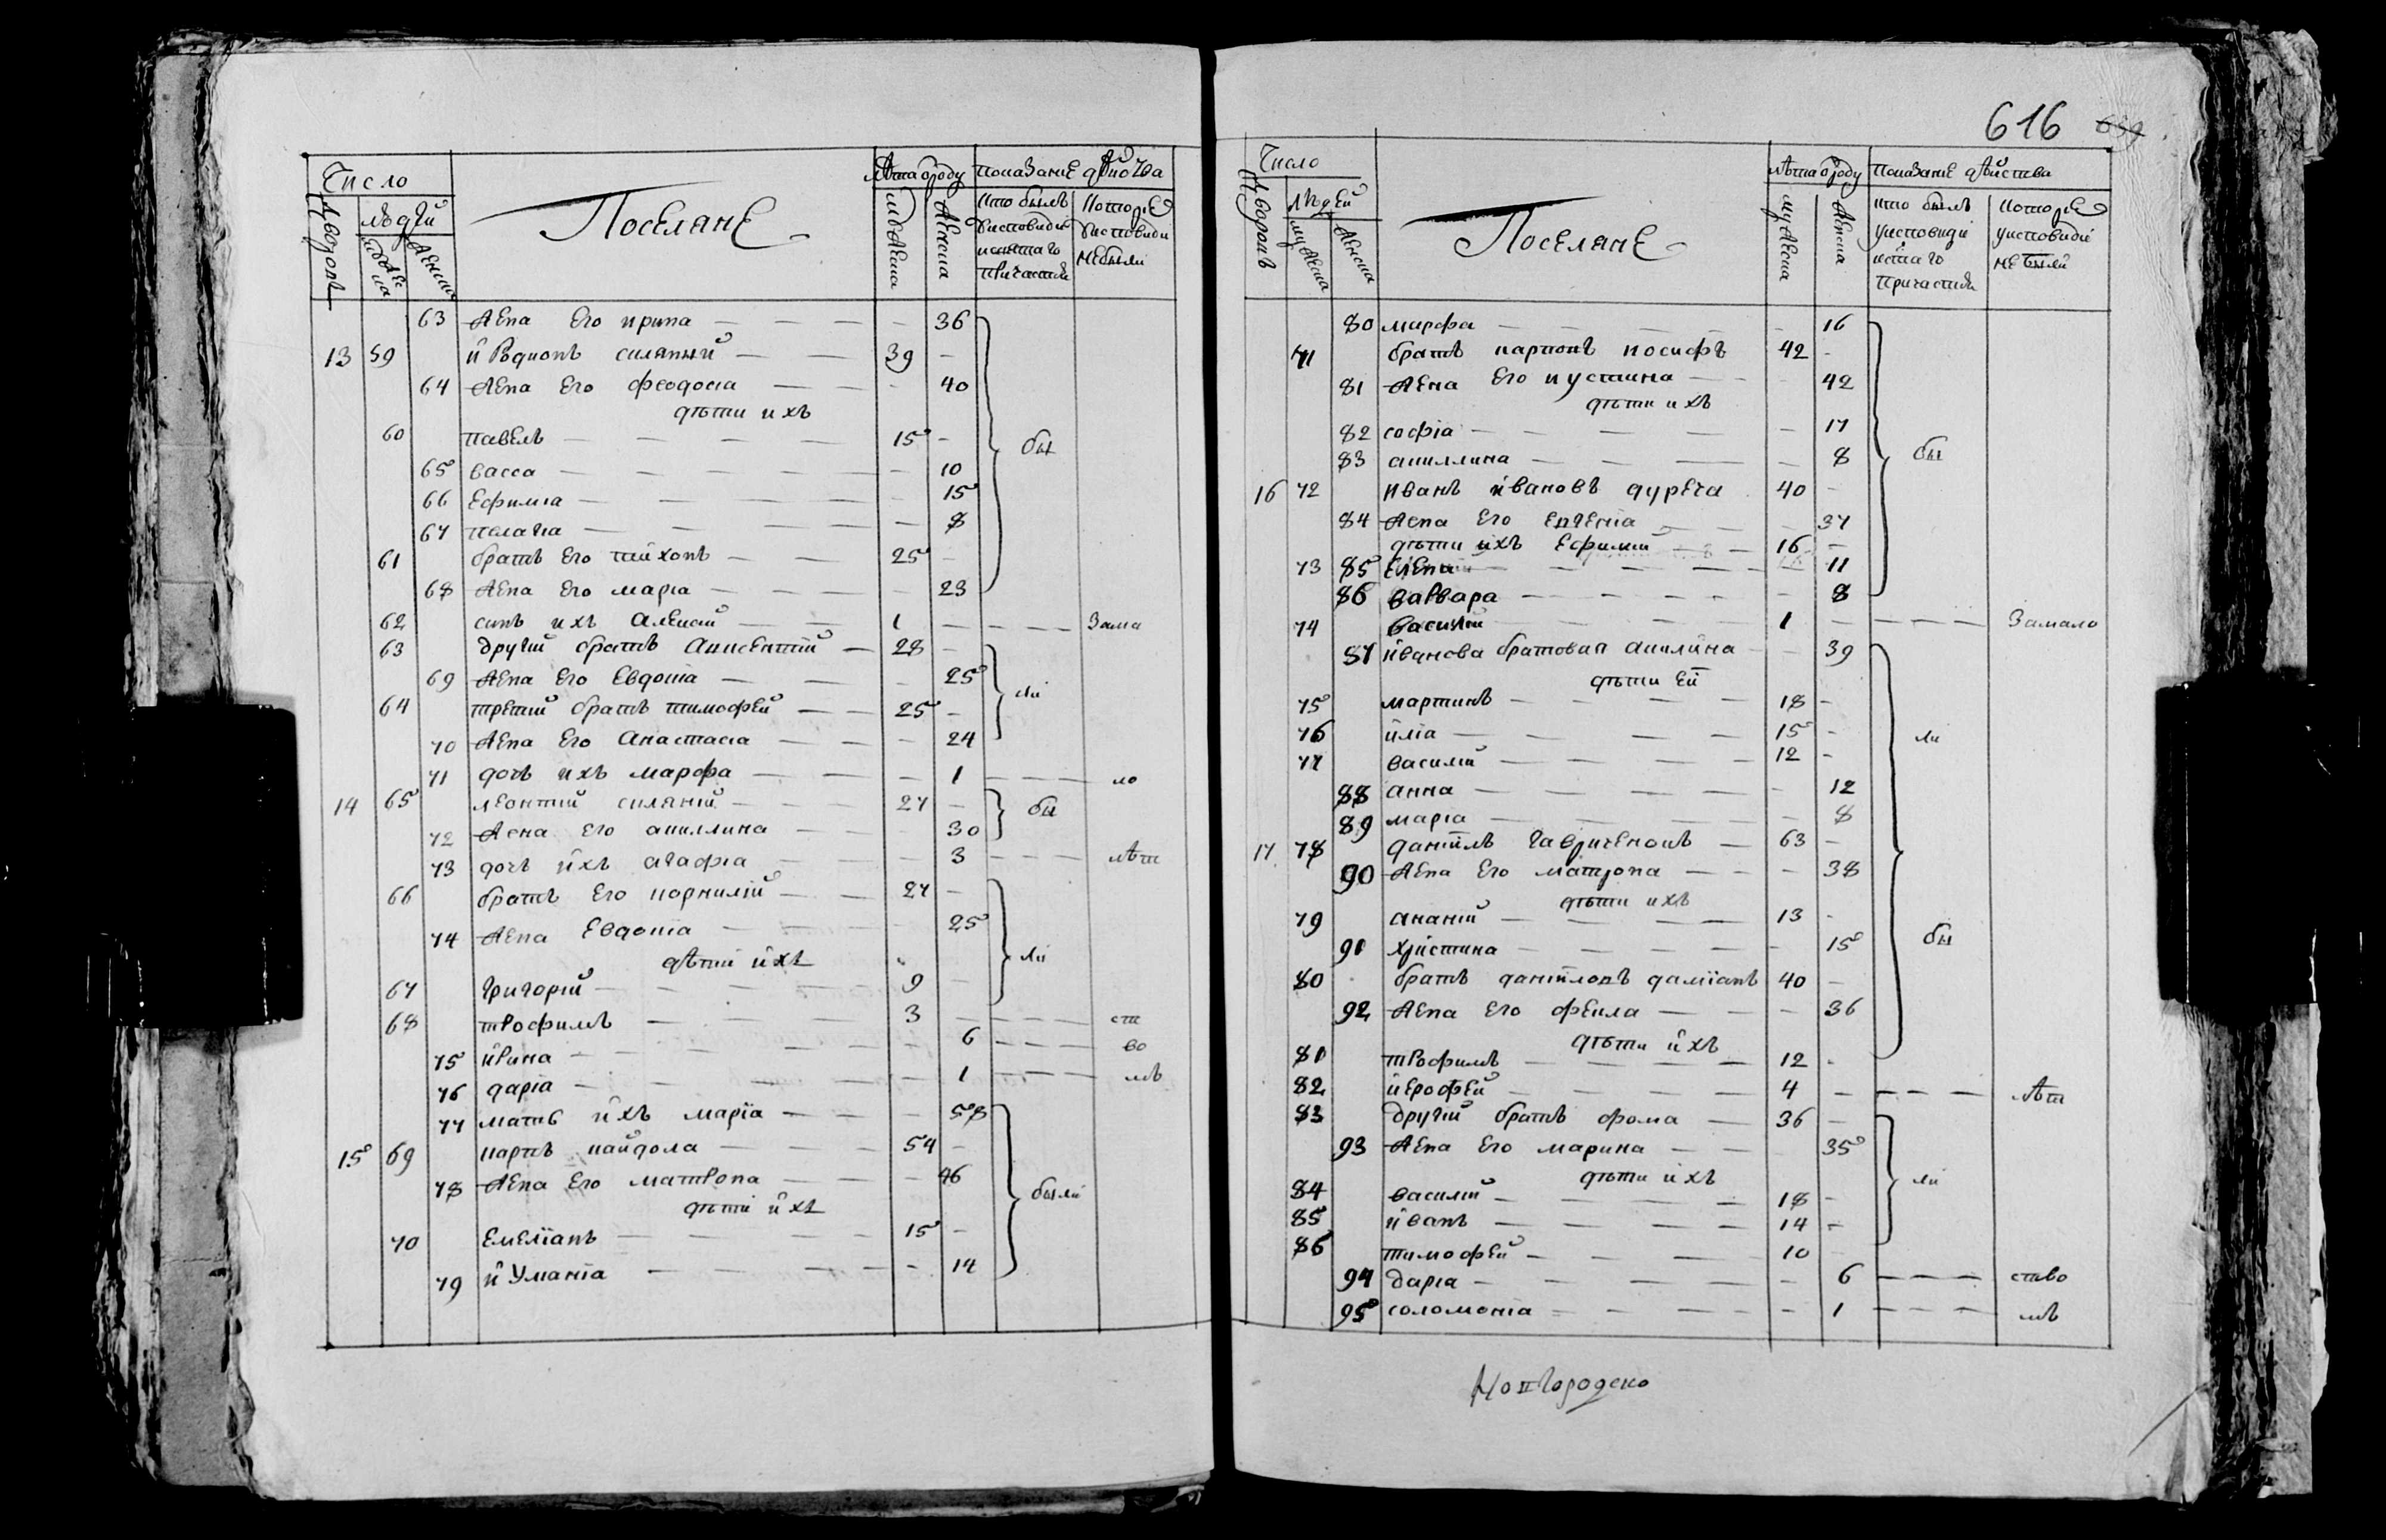 Число
Дворовъ
людей
мужеска
женска
Поселянѣ
лѣта ѿ роду
мужеска
женска
показаніе дѣйства
кто былъ у исповѣди и святаго причастія
которіе у исповѣди не были
63 жена его ирина — — — — 36
13 59 иродіонъ силяный — — 39 —
64 жена его феодосиа — — — 40
дѣти ихъ
60 павелъ — — — — 15 —
65 васса — — — — — 10
66 Ефимиа — — — — 15
67 пелагиа — — — — 8
61 братъ его тихонъ — — 25 —
68 жена его мариа — — — 23
бы
62 синъ ихъ алексій — — 1 — — — — Зама
63 другій братъ авксентій — 28 —
69 жена его Евдокіа — — — 25
64 третій братъ тимофей — — 25 —
70 жена его Анастасіа — — — 24
ли
71 дочъ ихъ марфа — — — 1 — — — ло
14 65 леонтій силяній — — — 27 —
72 жена его акиллина — — — 30
бы
73 дочъ ихъ агафіа — — — 3 — — — лѣт
66 братъ его корнилій — — 27 —
74 жена Евдокіа — — — 25
дѣти ихъ
67 григорій — — — — 9 —
ли
68 трофимъ — — — — 3 — — — — ст
75 ирина — — — — — 6 — — — во
76 дариа — — — — — 1 — — — мъ
77 мать ихъ маріа — — — 58
15 69 карпъ кайдола — — — 54 —
78 жена его матрона — — — 46
дѣти ихъ
70 Емеліанъ — — — — 15 —
79 иуманіа — — — — 14
были
616
Число
Дворовъ
людей
мужеска
женска
Поселянѣ
лѣта ѿ роду
мужеска
женска
показаніе дѣйства
кто былъ у исповѣди и стаго причастія
которіе у исповѣди не были
80 марфа — — — — — 16
71 братъ карповъ иосифъ 42 —
81 жена его иустина — — — 42
дѣти ихъ
82 софіа — — — — — 17
83 акиллина — — — — 8
16 72 иванъ ивановъ дурича 40 —
84 жена его евгеніа — — — 37
дѣти ихъ Ефимій — 16 —
73 85 Елена — — — — — 11
86 варвара — — — — — 8
бы
74 василій — — — 1 — — — — Замало
87 иванова братовая акилина — — 39
дѣти ей
75 мартинъ — — — — 18 —
76 иліа — — — — 15 —
77 василій — — — — 12 —
ли
88 анна — — — — — 12
89 мариа — — — — 8
17 78 даніилъ гавриченокъ — 63 —
90 жена его матрона — — — 38
дѣти ихъ
79 ананій — — — — 13 —
91 христина — — — — — 15
бы
80 братъ даніиловъ даміанъ 40 —
92 жена его фекла — — — 36
дѣти ихъ
81 трофимъ — — — — 12 —
82 иерофей — — — — 4 — — — — лѣт
83 другій братъ фома — 36 —
93 жена его марина — — 35
дѣти ихъ
84 василій — — — — 18 —
85 иванъ — — — — 14 —
ли
86 тимофей — — — 10
94 дариа — — — — — 6 — — — ство
95 соломоніа — — — — — 1 — — — мъ